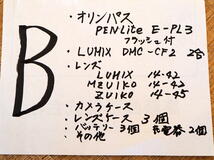 B
・オリンパス
PENLite E-PL3
フラッシュ付
・LUMIX DMC-CF2 2台
・レンズ
LUMIX 14-42
MZUIKO 14-42
ZUIKO 14-45
・カメラケース
・レンズケース 3個
・バッテリー 3個 充電器 2個
・その他